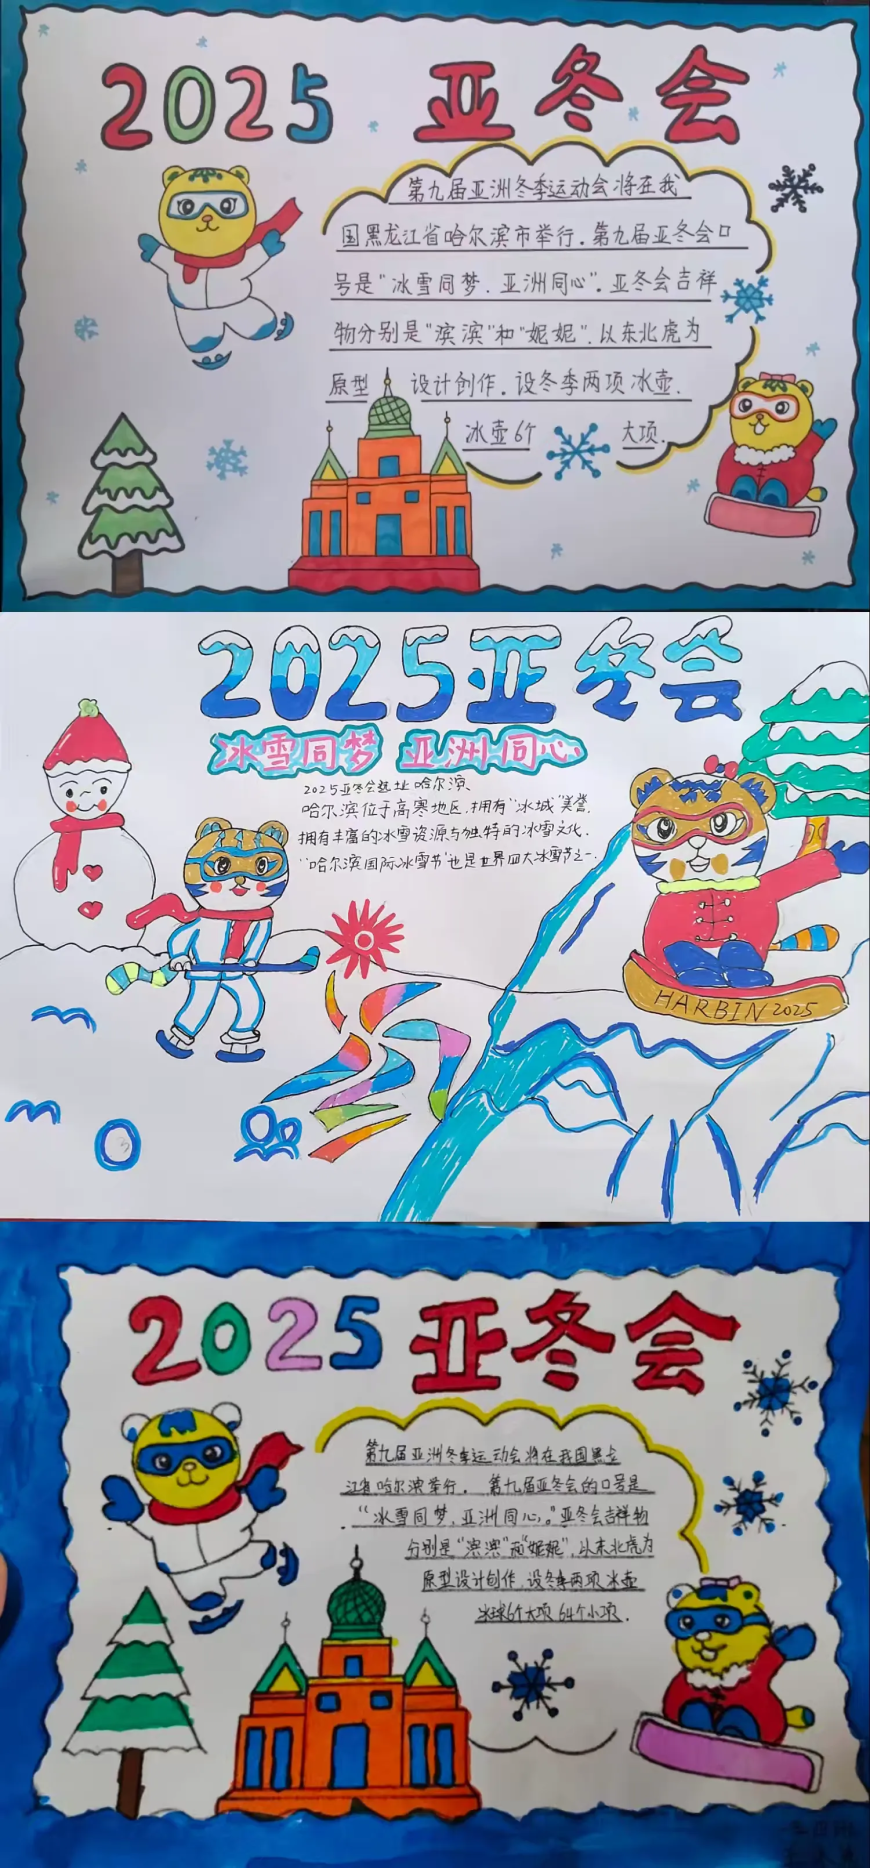 2025 亚冬会
第九届亚洲冬季运动会将在我
国黑龙江省哈尔滨市举行.第九届亚冬会口
号是“冰雪同梦、亚洲同心”.亚冬会吉祥
物分别是“滨滨”和“妮妮”.以东北虎为
原型 设计创作.设冬季两项冰壶.
冰壶6个 大项.
2025亚冬会
冰雪同梦 亚洲同心
2025亚冬会选址哈尔滨、
哈尔滨位于高寒地区.拥有“冰城”美誉.
拥有丰富的冰雪资源与独特的冰雪文化.
“哈尔滨国际冰雪节”也是世界四大冰雪节之一.
HARBIN 2025
2025 亚冬会
第九届亚洲冬季运动会将在我国黑龙
江省哈尔滨举行. 第九届亚冬会的口号是
“冰雪同梦,亚洲同心。”亚冬会吉祥物
分别是“滨滨”和“妮妮”,以东北虎为
原型设计创作.设冬季两项冰壶
冰球6个大项64个小项.